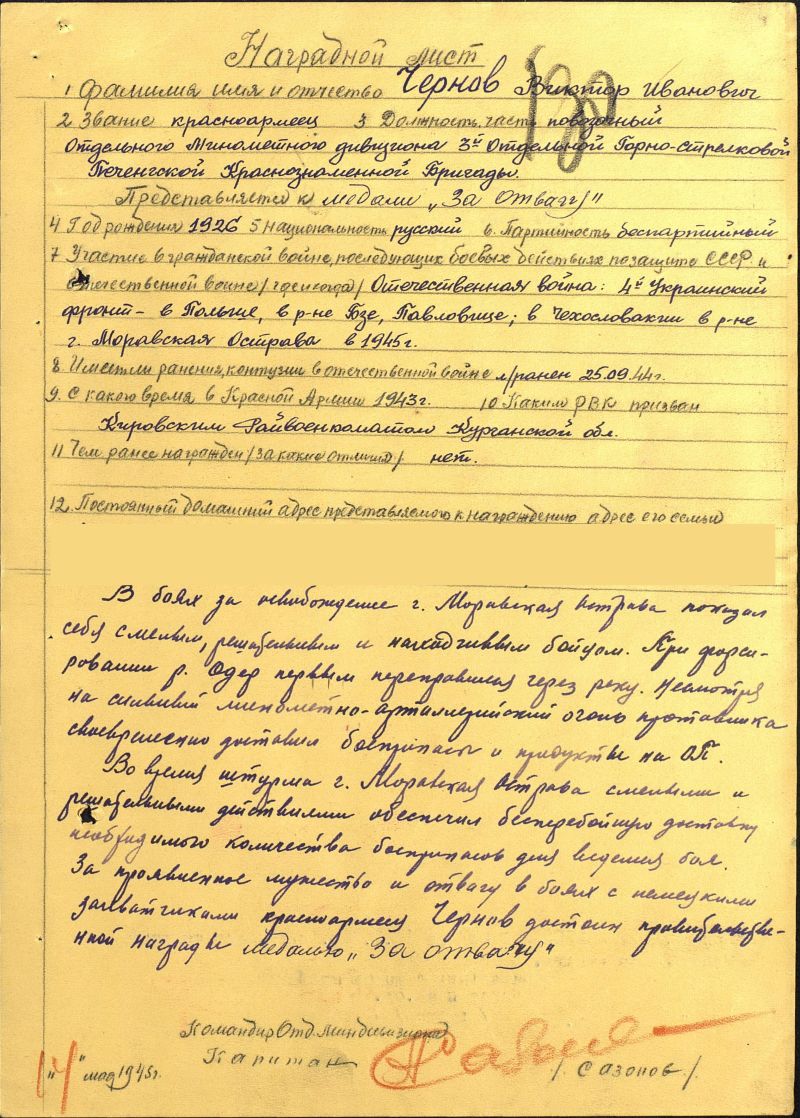 Наградной лист
1 Фамилия имя и отчество Чернов Виктор Иванович
2 Звание красноармеец 3 Должность, часть повозочный
Отдельного Минометного дивизиона 3й Отдельной Горно-стрелковой
Печенгской Краснознаменной Бригады.
Представляется к медали „За Отвагу"
4 Год рождения 1926 5 Национальность русский 6. Партийность беспартийный
7 Участие в гражданской войне, последующих боевых действиях по защите СССР и
отечественной войне /где и когда/ Отечественная война: 4й Украинский
фронт - в Польше, в р-не Бзе, Павловице; в Чехословакии в р-не
г. Моравская Острава в 1945г.
8 Имеет ли ранения, контузии в отечественной войне л/ранен 25.09.44г.
9. С какого время в Красной Армии 1943г. 10 Каким РВК призван
Кировским Райвоенкоматом Курганской обл.
11 Чем ранее награжден /за какие отличия/ нет.
12. Постоянный домашний адрес представляемого к награждению адрес его семьи
В боях за освобождение г. Моравская Острава показал
себя смелым, решительным и находчивым бойцом. При форси-
ровании р. Одер первым переправился через реку. Несмотря
на сильный минометно-артиллерийский огонь противника
своевременно доставил боеприпасы и продукты на ОП.
Во время штурма г. Моравская Острава смелыми и
решительными действиями обеспечил бесперебойную доставку
необходимого количества боеприпасов для ведения боя.
За проявленное мужество и отвагу в боях с немецкими
захватчиками красноармеец Чернов достоин правительстве-
нной награды медалью „За отвагу"
Командир Отд. Миндивизиона
Капитан /Сазонов/.
„14" мая 1945г.